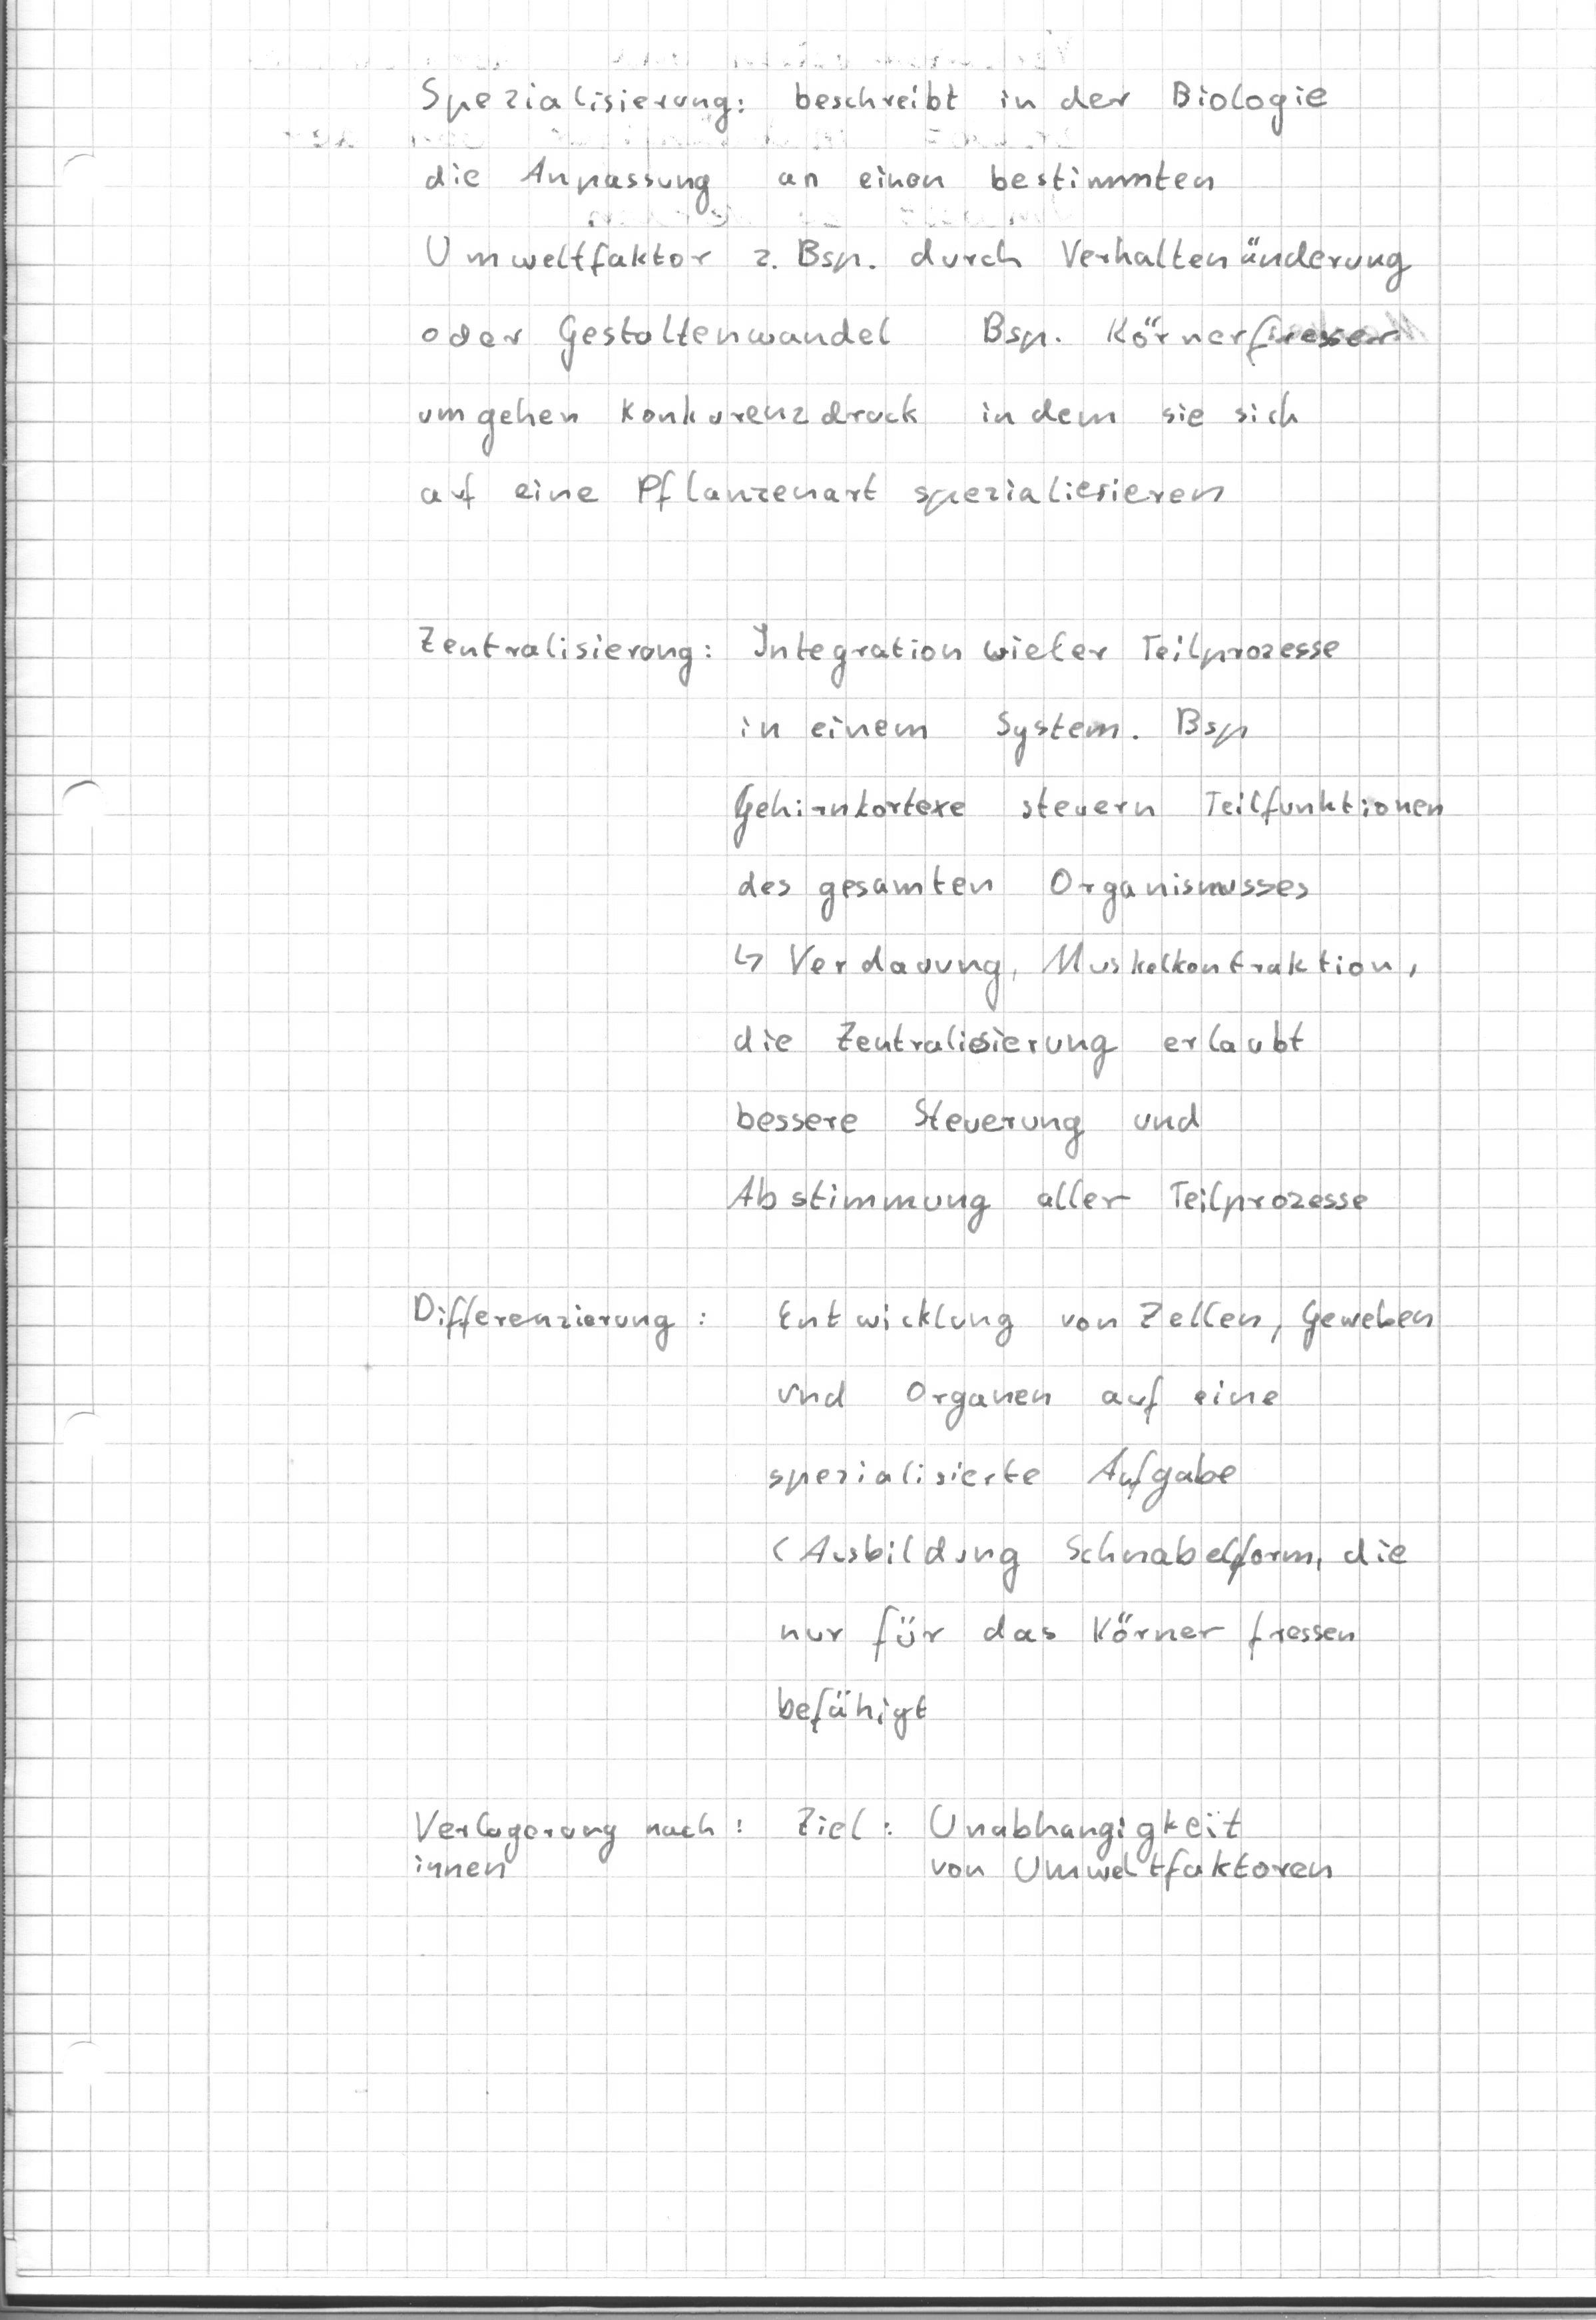 Spezialisierung: beschreibt in der Biologie
die Anpassung an einen bestimmten
Umweltfaktor z. Bsp. durch Verhaltenänderung
oder Gestaltenwandel Bsp. Körnerfresser
umgehen Konkurenzdruck in dem sie sich
auf eine Pflanzenart spezialiesieren
Zentralisierung: Integration wieler Teilprozesse
in einem System. Bsp
Gehirnkortexe steuern Teilfunktionen
des gesamten Organismusses
↳ Verdauung, Muskelkontraktion,
die Zentralisierung erlaubt
bessere Steuerung und
Abstimmung aller Teilprozesse
Differenzierung: Entwicklung von Zellen, Geweben
und Organen auf eine
spezialisierte Aufgabe
(Ausbildung Schnabelform, die
nur für das Körner fressen
befähigt
Verlagerung nach: Ziel: Unabhangigkeit
innen von Umweltfaktoren